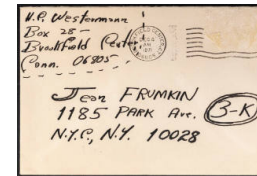 V.P. Westermann
Box 28 —
Brookfield Center
Conn. 06805
Jean FRUMKIN
1185 PARK Ave.
3-K
N.Y.C., N.Y. 10028